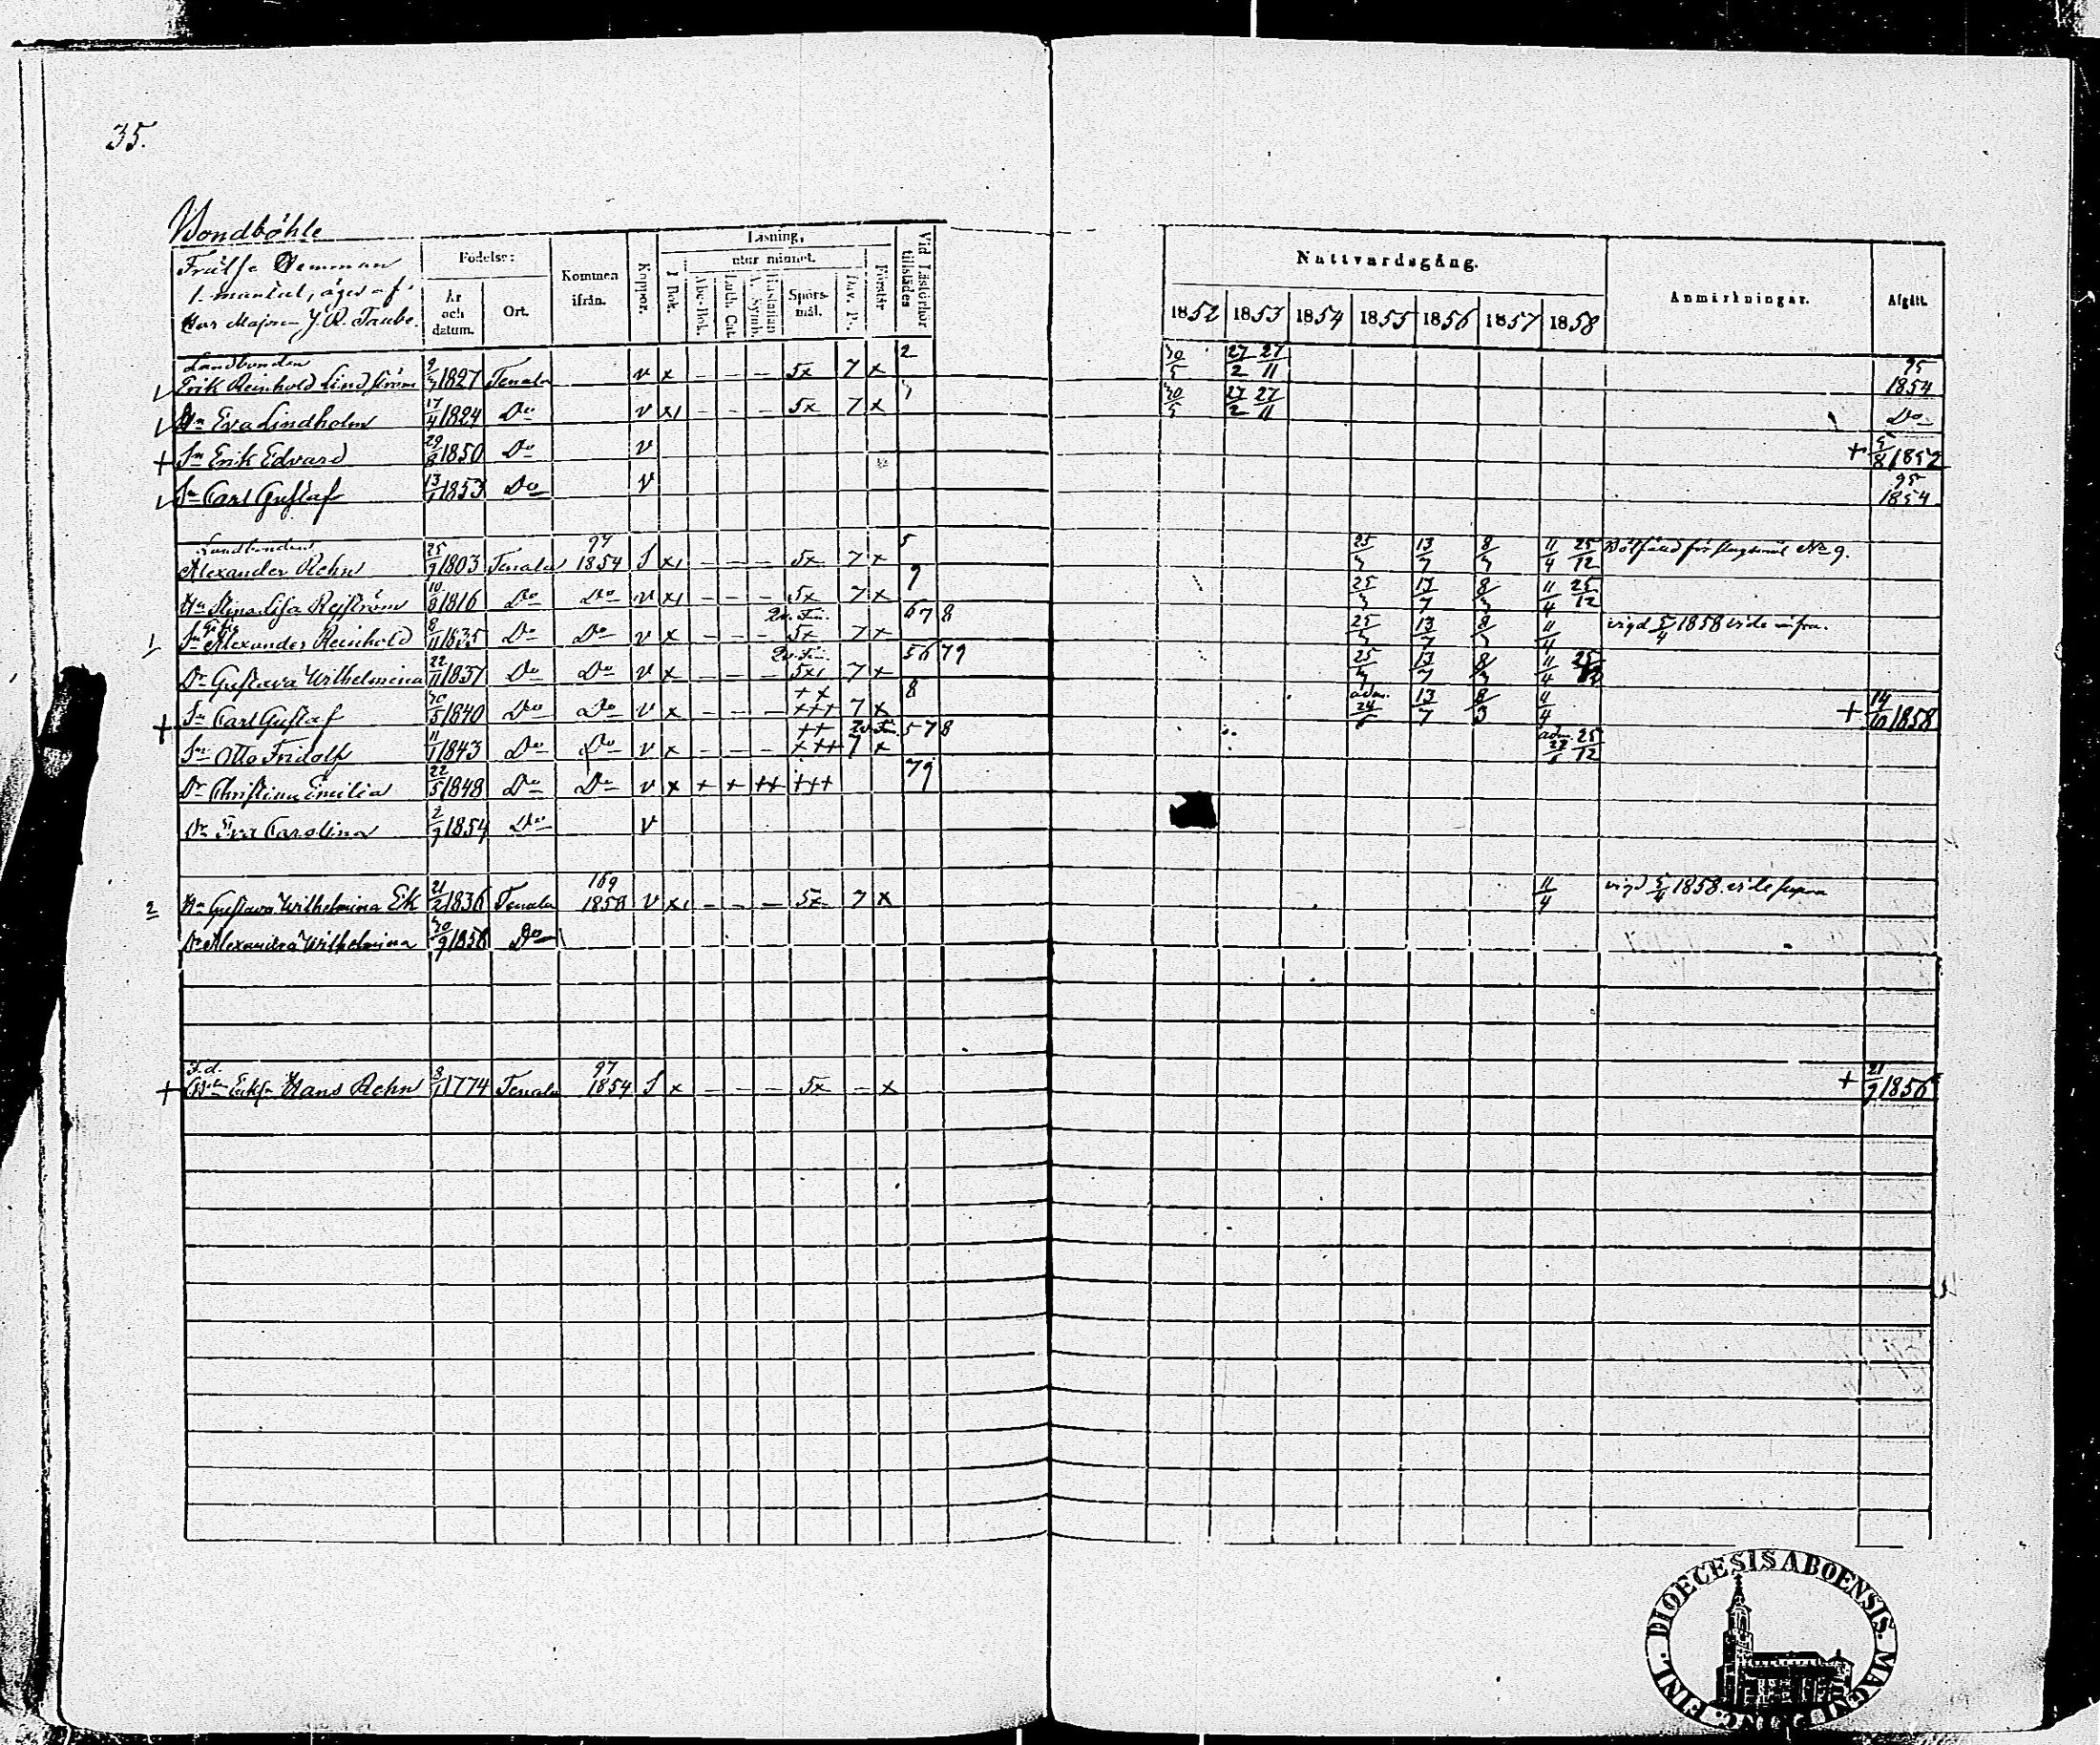 35.
Bondböhle
Frälse Hemman
1. mantal, äges af
Har Majoren J. R. Taube.
Födelse:
År och datum.
Ort.
Kommen ifrån.
Koppor.
Läsning,
utur minnet.
I Bok.
Abc-Bok.
Luth. Cat.
A. Symb.
Hustaflan
Spörs-mål.
Dav. P.
Förstår
Vid Läsförhör tillstädes
Nattvardsgång.
1852 1853 1854 1855 1856 1857 1858
Anmärkningar.
Afgått.
Landbonden
Erik Reinhold Lindström 9/3 1827 Tenala v x - - - 5x 7 x 2 30/5 27/2 27/11 95 1854
Hu Eva Lindholm 17/4 1824 Do v x1 - - - 5x 7 x 30/5 27/2 27/11 Do
+ Sn Erik Edvard 29/8 1850 Do v + 5/8 1852
Sn Carl Gustaf 13/1 1853 Do v 95 1854
Landbonden
Alexander Rehn 25/9 1803 Tenala 97 1854 S x1 - - - 5x 7 x 5 25/3 13/7 8/3 11/4 25/12 Bötfäld för slagsmål No 9.
Hu Stina Lisa Rejström 10/8 1816 Do Do v x1 - - - 5x 7 x 9 25/3 13/7 8/3 11/4 25/12
1 Sn Alexander Reinhold 8/11 1835 Do Do v x - - - 5x 7 x 6 7 8 25/3 13/7 8/3 11/4 vigd 5/4 1858 vide infra.
Dr Gustava Wilhelmina 22/11 1837 Do Do v x - - - 5x1 7 x 5 6 7 9 25/3 13/7 8/3 11/4 25/12
+ Sn Carl Gustaf 30/5 1840 Do Do v x - - - ++ +++ 7 x 8 adm. 24/6 13/7 8/3 11/4 + 14/10 1858
Sn Otto Fridolf 11/1 1843 Do Do v x - - - ++ +++ 7 x 5 7 8 adm. 25/12
Dr Christina Emilia 22/5 1848 Do Do v x + + ++ +++ 7 9
Dr Eva Carolina 2/7 1854 Do v
2 Hu Gustava Wilhelmina Ek 21/2 1836 Tenala 169 1858 v x1 - - - 5x 7 x 11/4 vigd 5/4 1858. vide supra
Dr Alexandra Wilhelmina 30/9 1858 Do
F.d.
+ Hans Rehn 8/1 1774 Tenala 97 1854 S x - - - 5x - x + 21/9 1856
DIOECESIS ABOENSIS. MAGNI DUC: FINL.